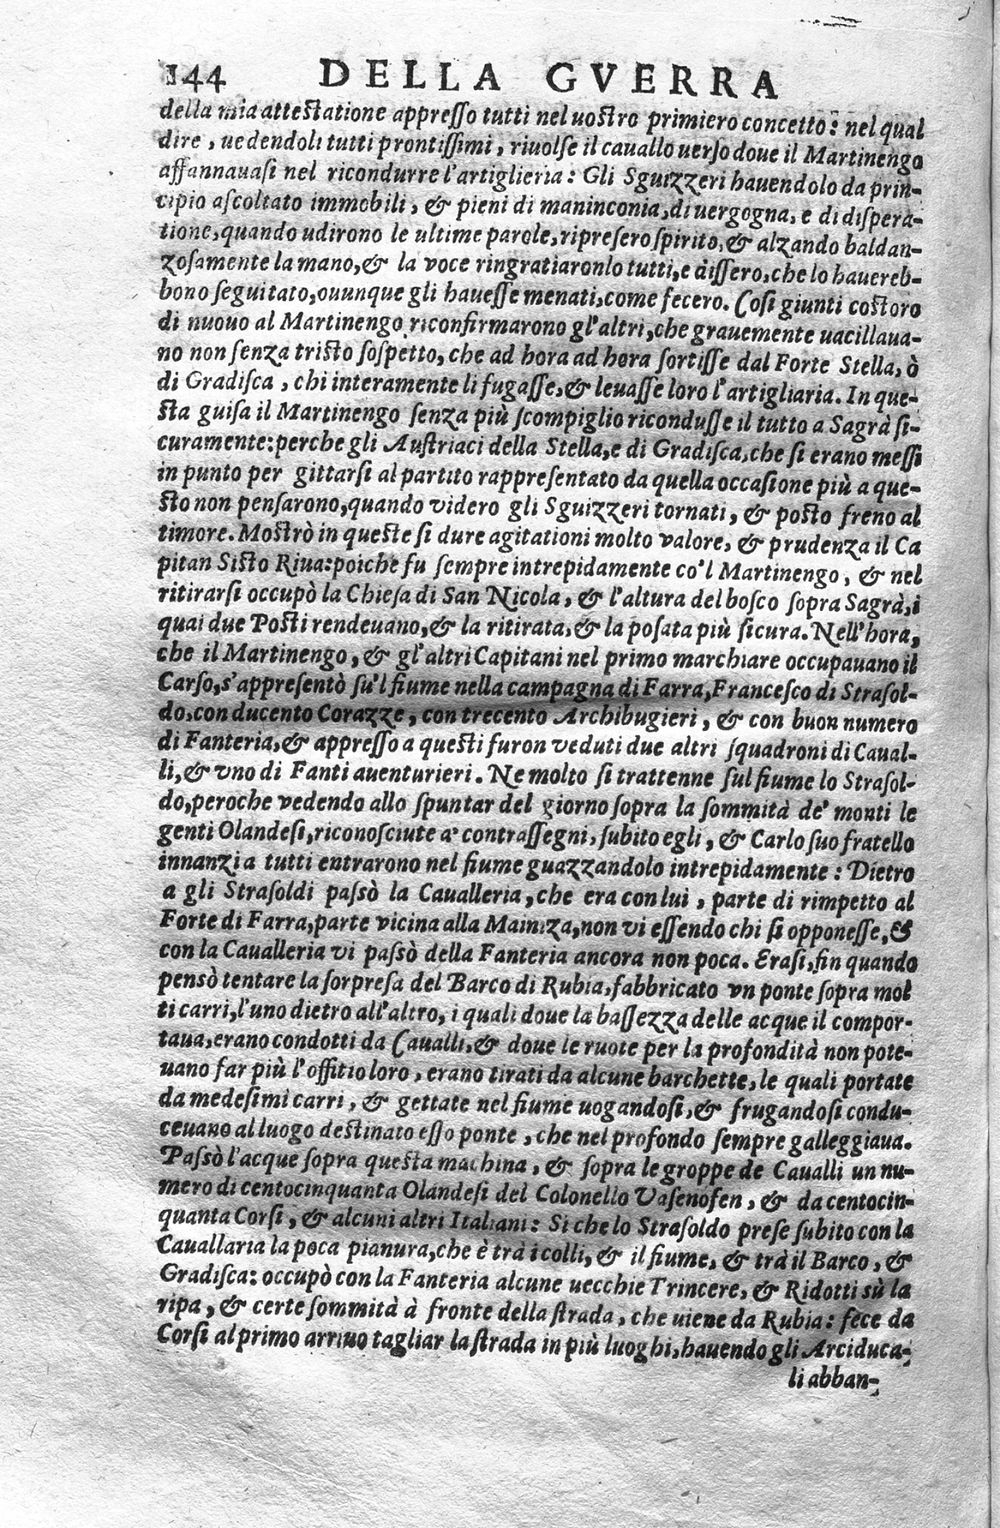 144 DELLA GVERRA
della mia attestatione appresso tutti nel uostro primiero concetto: nel qual
dire, uedendoli tutti prontissimi, riuolse il cauallo uerso doue il Martinengo
affannauasi nel ricondurre l'artiglieria: Gli Sguizzeri hauendolo da prin-
cipio ascoltato immobili, & pieni di maninconia, di uergogna, e di dispera-
tione, quando udirono le ultime parole, ripresero spirito, & alzando baldan-
zosamente la mano, & la voce ringratiaronlo tutti, e dissero, che lo hauereb-
bono seguitato, ouunque gli hauesse menati, come fecero. Così giunti costoro
di nuouo al Martinengo riconfirmarono gl'altri, che grauemente uacillaua-
no non senza tristo sospetto, che ad hora ad hora sortisse dal Forte Stella, ò
di Gradisca, chi interamente li fugasse, & leuasse loro l'artigliaria. In que-
sta guisa il Martinengo senza più scompiglio ricondusse il tutto a Sagrà si-
curamente: perche gli Austriaci della Stella, e di Gradisca, che si erano messi
in punto per gittarsi al partito rappresentato da quella occasione più a que-
sto non pensarono, quando videro gli Sguizzeri tornati, & posto freno al
timore. Mostrò in queste si dure agitationi molto valore, & prudenza il Ca
pitan Sisto Riua: poiche fu sempre intrepidamente co'l Martinengo, & nel
ritirarsi occupò la Chiesa di San Nicola, & l'altura del bosco sopra Sagrà, i
quai due Posti rendeuano, & la ritirata, & la posata più sicura. Nell'hora,
che il Martinengo, & gl'altri Capitani nel primo marchiare occupauano il
Carso, s'appresentò su'l fiume nella campagna di Farra, Francesco di Strasol-
do, con ducento Corazze, con trecento Archibugieri, & con buon numero
di Fanteria, & appresso a questi furon veduti due altri squadroni di Caual-
li, & vno di Fanti auenturieri. Ne molto si trattenne sul fiume lo Strasol-
do, peroche vedendo allo spuntar del giorno sopra la sommità de' monti le
genti Olandesi, riconosciute a' contrassegni, subito egli, & Carlo suo fratello
innanzi a tutti entrarono nel fiume guazzandolo intrepidamente: Dietro
a gli Strasoldi passò la Caualleria, che era con lui, parte di rimpetto al
Forte di Farra, parte vicina alla Mainiza, non vi essendo chi si opponesse, &
con la Caualleria vi passò della Fanteria ancora non poca. Erasi, fin quando
pensò tentare la sorpresa del Barco di Rubia, fabbricato vn ponte sopra mol
ti carri, l'uno dietro all'altro, i quali doue la bassezza delle acque il compor-
taua, erano condotti da Caualli, & doue le ruote per la profondità non pote-
uano far più l'offitio loro, erano tirati da alcune barchette, le quali portate
da medesimi carri, & gettate nel fiume uogandosi, & frugandosi condu-
ceuano al luogo destinato esso ponte, che nel profondo sempre galleggiaua.
Passò l'acque sopra questa machina, & sopra le groppe de Caualli un nu-
mero di centocinquanta Olandesi del Colonello Vasenofen, & da centocin-
quanta Corsi, & alcuni altri Italiani: Si che lo Strasoldo prese subito con la
Cauallaria la poca pianura, che è trà i colli, & il fiume, & trà il Barco, &
Gradisca: occupò con la Fanteria alcune uecchie Trincere, & Ridotti sù la
ripa, & certe sommità à fronte della strada, che uiene da Rubia: fece da
Corsi al primo arriuo tagliar la strada in più luoghi, hauendo gli Arciduca-
li abban-